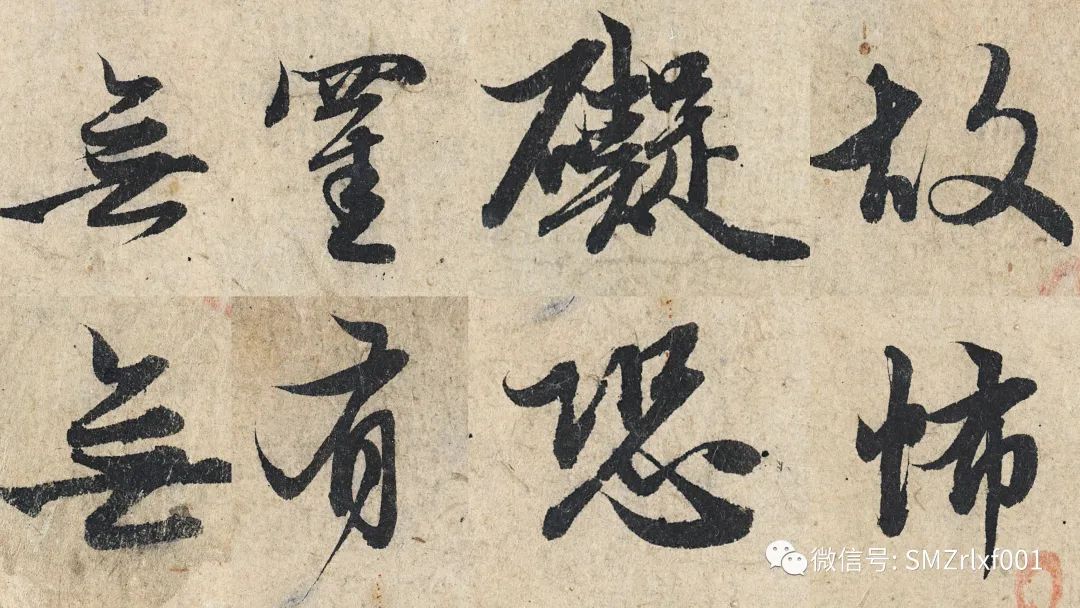 無罣礙故
無有恐怖
微信号: SMZrlxf001